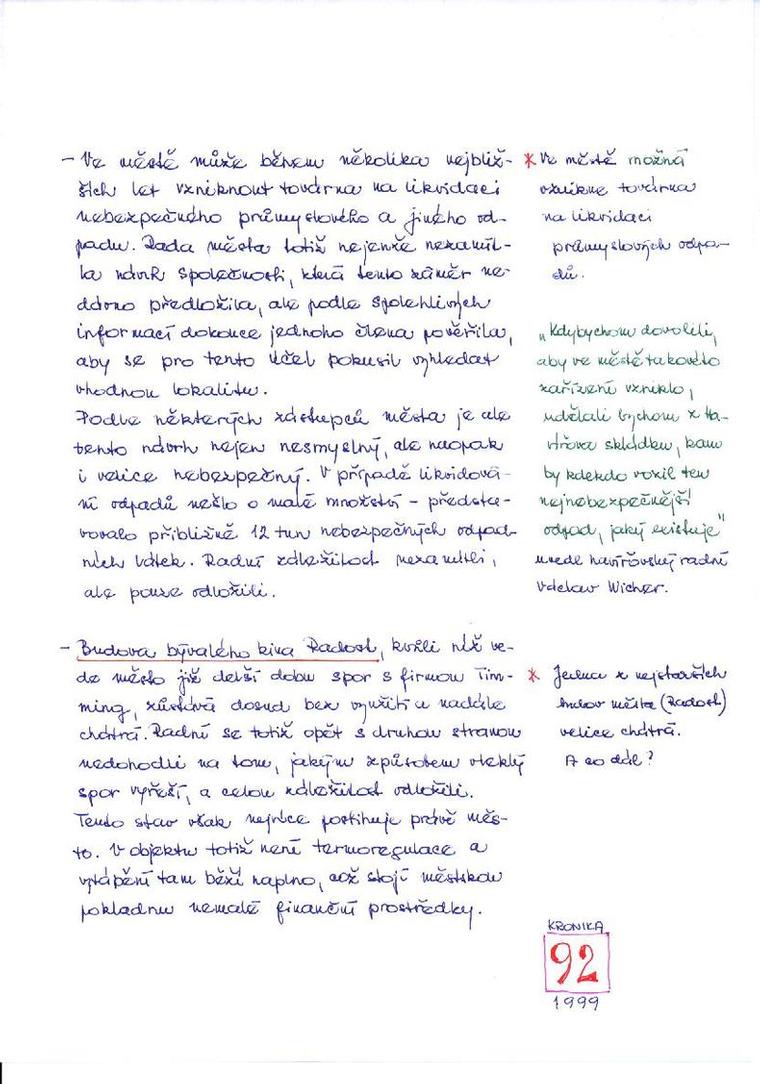 - Ve městě může během několika nejbliž-
ších let vzniknout továrna na likvidaci
nebezpečného průmyslového a jiného od-
padu. Rada města totiž nejenže nezamít-
la návrh společnosti, která tento záměr ne-
dávno předložila, ale podle spolehlivých
informací dokonce jednoho člena pověřila,
aby se pro tento účel pokusil vyhledat
vhodnou lokalitu.
Podle některých zástupců města je ale
tento návrh nejen nesmyslný, ale naopak
i velice nebezpečný. V případě likvidová-
ní odpadů nešlo o malé množství - předsta-
vovalo přibližně 12 tun nebezpečných odpad-
ních látek. Radní záležitost nezamítli,
ale pouze odložili.
- Budova bývalého kina Radost, kvůli níž ve-
de město již delší dobu spor s firmou Tim-
ming, zůstává dosud bez využití a nadále
chátrá. Radní se totiž opět s druhou stranou
nedohodli na tom, jakým způsobem vleklý
spor vyřeší, a celou záležitost odložili.
Tento stav však nejvíce postihuje právě měs-
to. V objektu totiž není termoregulace a
vytápění tam běží naplno, což stojí městskou
pokladnu nemalé finanční prostředky.
* Ve městě možná
vznikne továrna
na likvidaci
průmyslových odpa-
dů.
„Kdybychom dovolili,
aby ve městě takovéto
zařízení vzniklo,
udělali bychom z Ha-
vířova skládku, kam
by kdekdo vozil ten
nejnebezpečnější
odpad, jaký existuje"
uvedl havířovský radní
Václav Wicher.
* Jedna z nejstarších
budov města (Radost)
velice chátrá.
A co dál?
KRONIKA
92
1999